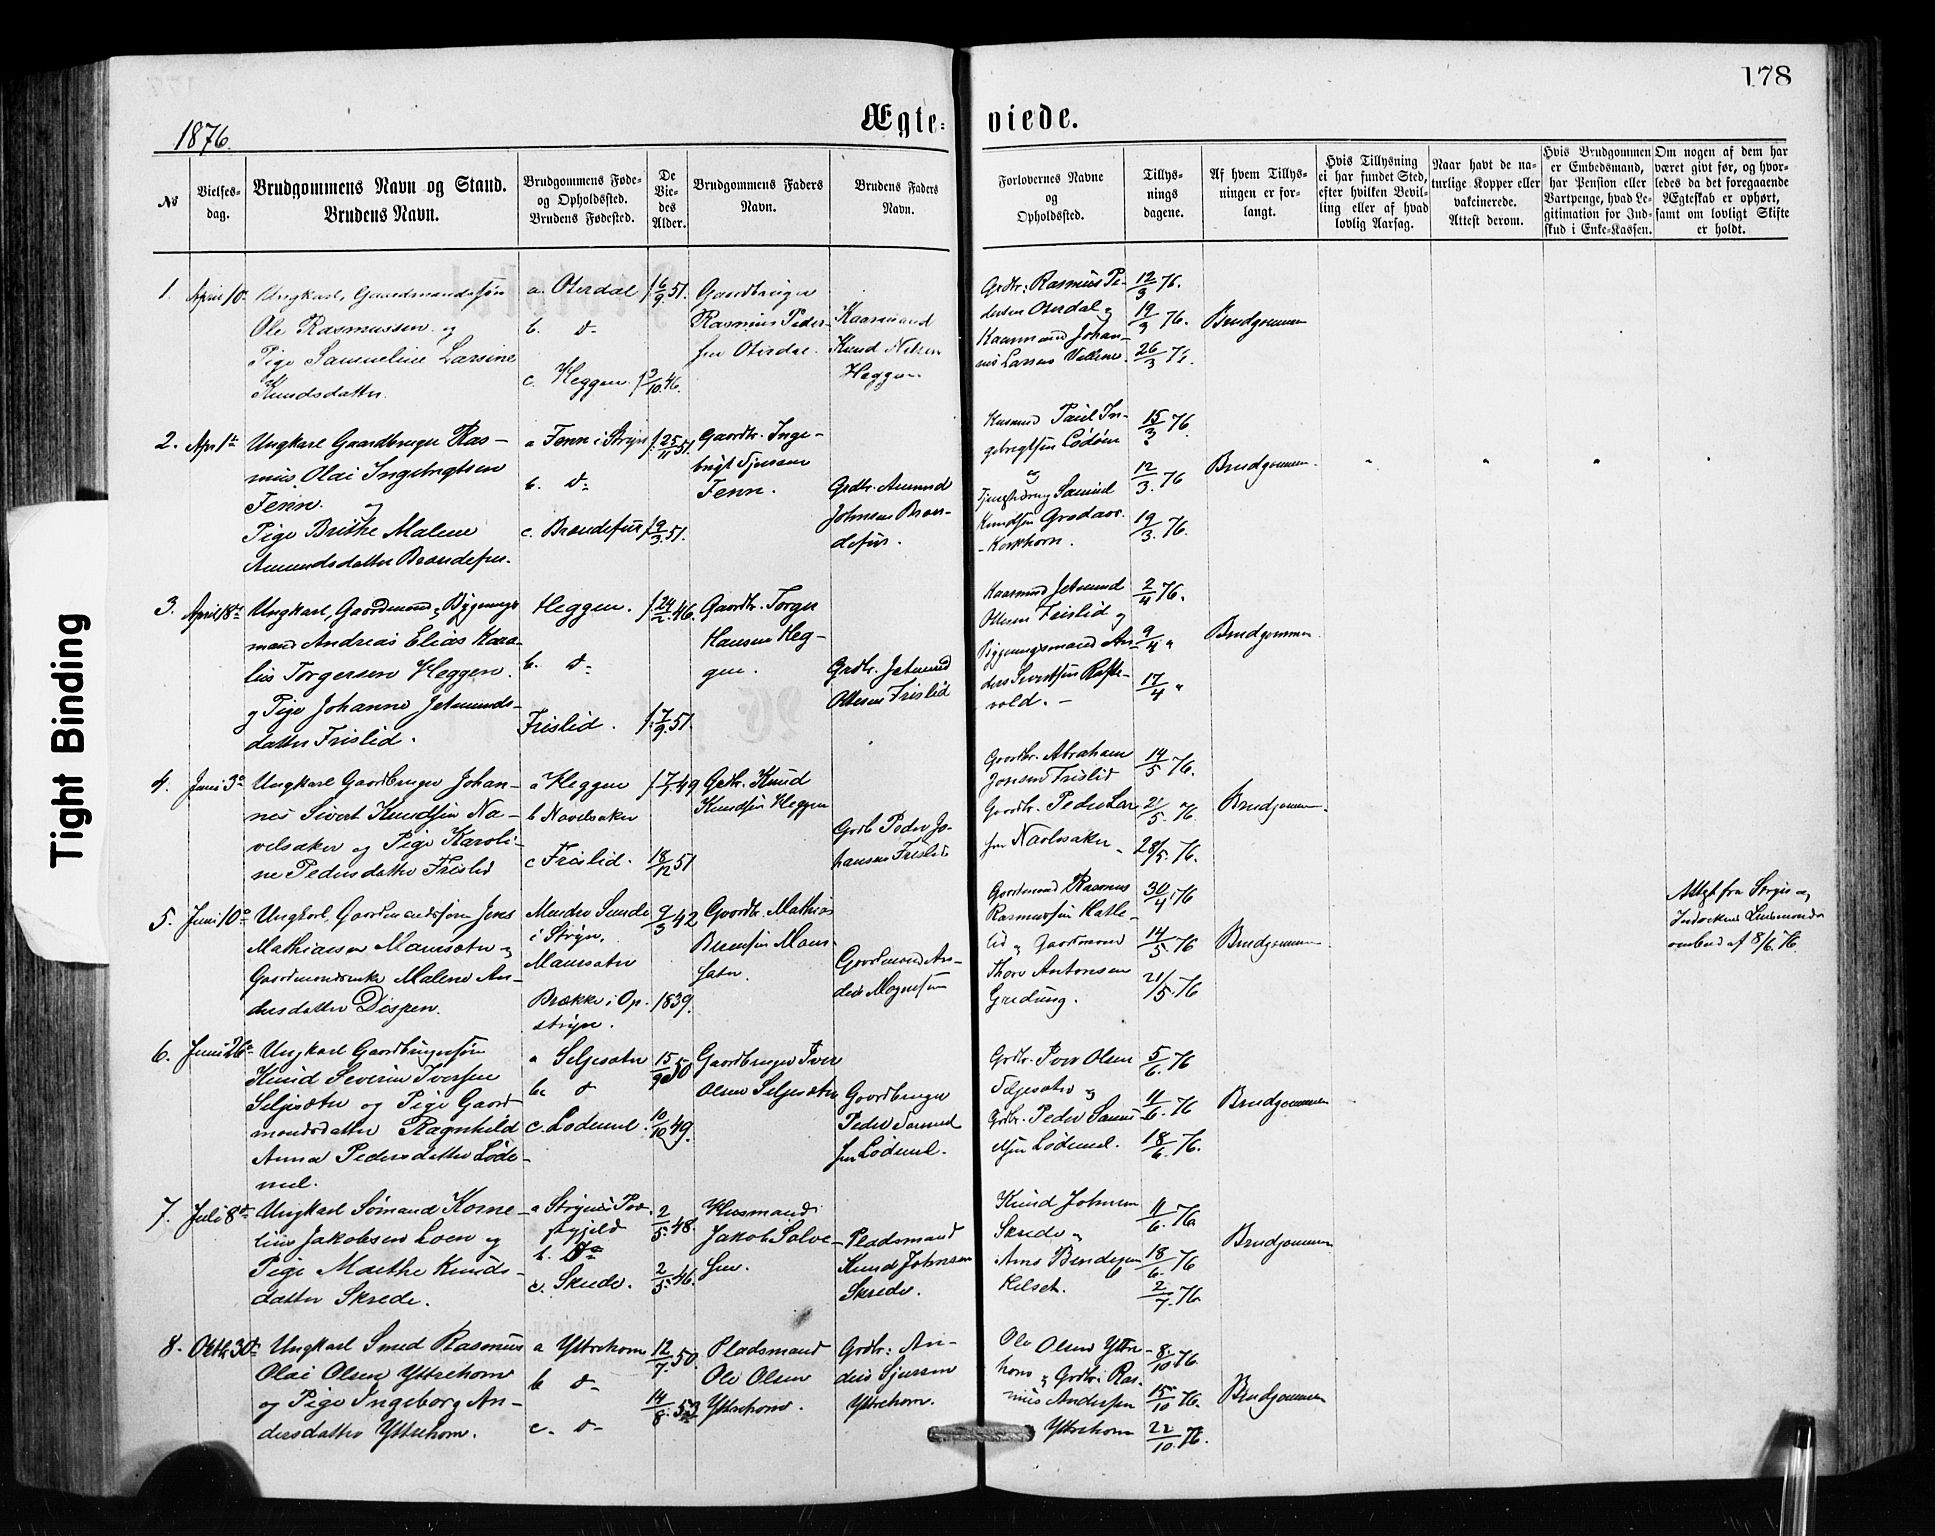 178
Ægteviede.
1876.
Tight Binding
No
Vielsesdag.
Brudgommens Navn og Stand.
Brudens Navn.
Brudgommens Føde-
og Opholdssted.
Brudens Fødested.
De
Vie-
des
Alder.
Brudgommens Faders
Navn.
Brudens Faders
Navn.
Forlovernes Navne
og
Opholdssted.
Tillys-
nings
dagene.
Af hvem Tillys-
ningen er for-
langt.
Hvis Tillysning
ei har fundet Sted,
efter hvilken Bevil-
ling eller af hvad
lovlig Aarsag.
Naar havt de na-
turlige Kopper eller
vakcinerede.
Attest derom.
Hvis Brudgommen
er Embedsmand,
har Pension eller
Vartpenge, hvad Le-
gitimation for Ind-
skud i Enke-Kassen.
Om nogen af dem har
været gift før, og hvor-
ledes da det foregaaende
Ægteskab er ophørt,
samt om lovligt Skifte
er holdt.
1. April 10.
Ungkarl, Gaardmandssøn
Ole Rasmussen og
Pige Samueline Larsine
Knudsdatter.
a. Oterdal
b. do
c. Heggen.
6/9 51.
2/10 46.
Gaardbruger
Rasmus Peder-
sen Oterdal.
Kaarmand
Knud Nilsen
Heggen
Grdbr. Rasmus Pe-
dersen Oterdal og
Kaarmand Johan-
nes Larsen
12/3 76.
19/3 76.
26/3 76.
Brudgommen
2. Apr.
Ungkarl Gaardbruger Ras-
mus Olai Ingebrigtsen
Fenn. og
Pige Brithe Malene
Amundsdatter Brandefur.
a Fenn i Stryn
b. do
c. Brandefur
25/11 51.
9/3 51.
Gaardbr. Inge-
brigt
Fenn.
Grdbr. Amund
Johnsen Bran-
defur.
Husmand Paul In-
gebrigtsen
og
Samuel
Knudsen
15/3 76.
12/3 76
19/3 76.
Brudgommen.
3. April 18de
Ungkarl, Gaardmand, Bygnings-
mand Andreas Elias Kaa-
lius Torgersen Heggen.
og Pige Johanne Jetmunds-
datter Frislid.
Heggen.
b. do
Frislid.
24/2 46.
7/9 51.
Gaardbr. Torger
Hansen Heg-
gen.
Grdbr. Jetmund
Ottesen Frislid
Kaarmand Jetmund
Ottesen Frislid og
Bygningsmand An-
ders Sivertsen Rafte-
vold.
2/4 76.
9/4 "
17/4 "
Brudgommen.
4. Juni 3de
Ungkarl Gaardbruger Johan-
nes Sivert Knudsen Na-
velsaker og Pige Karoli-
ne Pedersdatter Frislid
a Heggen
b Navelsaker
c Frislid.
7/1 49
18/12 51
Grdbr. Knud
Knudsen Heggen
Grdb Peder Jo-
hansen Frislid
Gaardbr. Abraham
Jonsen Frislid
Gaardbr. Peder Lar-
sen Navelsaker
14/5 76.
21/5 76.
28/5. 76.
Brudgommen.
5. Juni 10de
Ungkarl, Gaardmandssøn Jens
Mathiasen Maursæter og
Gaardmandsenke Malene An-
dersdatter Døspen.
Sunde
i Stryn,
Maursæter
Brække i Op-
stryn.
9/3 42
1839.
Gaardbr. Mathias
Maur-
sæter.
Gaardmand An-
ders Mogensen
Gaardmand Rasmus
Rasmussen Hatle-
lid og Gaardmand
Thore Antonsen
Grodung.
30/4 76
14/5 76
21/5 76
Brudgommen
Attest fra Stryn og
Indvikens Lensmands-
ombud af 8/6. 76.
6. Juni 26de
Ungkarl Gaardbrugersøn
Knud Severin Iversen
Seljesæter og Pige Gaard-
mandsdatter Ragnhild
Anna Pedersdatter Løde-
mel.
a Seljesæter
b. do
c. Lødemel.
15/9 50
10/10 49.
Gaardbruger Iver
Olsen Seljesæter
Gaardbruger
Peder Samuel-
sen Lødemel.
Grdbr. Iver Olsen
Seljesæter og
Grdbr. Peder Samu-
elsen Lødemel.
5/6. 76
11/6. 76
18/6. 76.
Brudgommen
7. Juli 8de
Ungkarl Sømand Korne-
lius Jakobsen Loen og
Pige Marthe Knuds-
datter Skrede.
a Stryns Præ-
stegjeld
b. Do
c. Skrede.
2/5. 48.
2/5. 46.
Husmand
Jakob Salve-
sen.
Pladsmand
Knud Johnsen
Skrede.
Knud Johnsen
Skrede og
Arne Bendixsen
Kilset.
11/6. 76
18/6. 76
2/7. 76.
Brudgommen
8. Oktbr 30te
Ungkarl Smed Rasmus
Olai Olsen Yttrehorn
og Pige Ingeborg An-
dersdatter Yttrehorn.
a Yttrehorn
b do
c. do
12/7. 50.
14/8. 53
Pladsmand
Ole Olsen
Yttrehorn.
Grdbr. An-
ders Sjursen
Yttrehorn.
Ole Olsen Yttre-
horn og Grdbr. Ras-
mus Andersen
Yttrehorn
8/10 76.
15/10 76.
22/10. 76.
Brudgommen